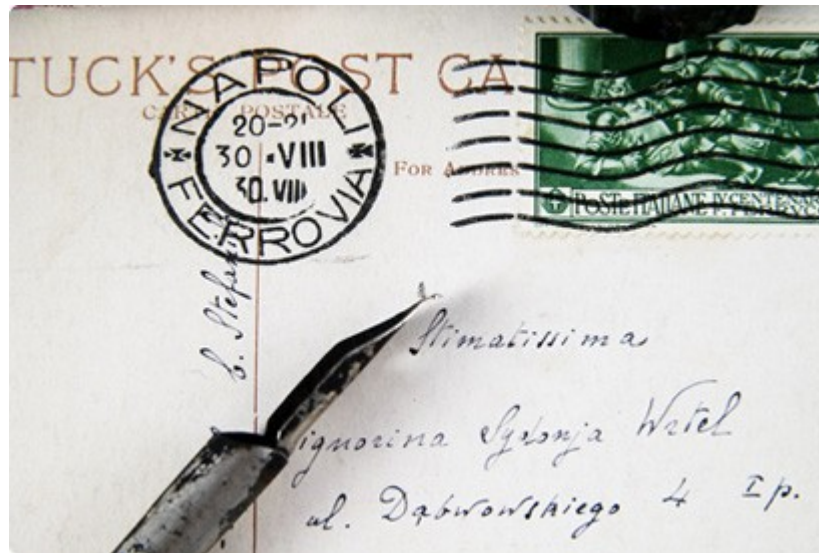 TUCK'S POST CA
CARTE POSTALE
NAPOLI
20-21
30 •VIII
30.VIII
FERROVIA
FOR ADDRES
POSTE ITALIANE IV CENTENAR
Stimatissima
ignorina Sydonja Wrtel
ul. Dąbrowskiego 4 I p.